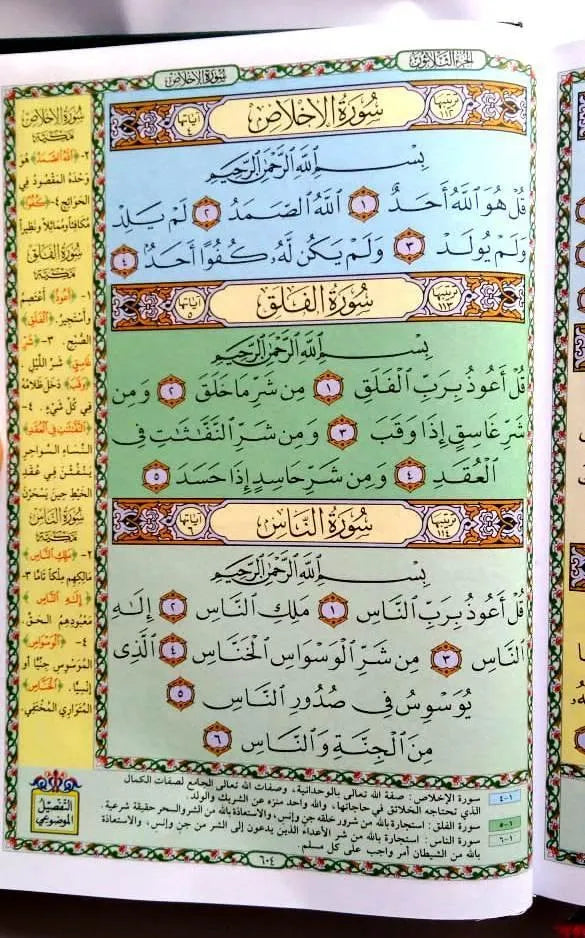 الجزء الثلاثون
سورة الإخلاص
ترتيبها ١١٢
سُورَةُ الإِخْلَاصِ
آياتها ٤
بِسْمِ اللَّهِ الرَّحْمَٰنِ الرَّحِيمِ
قُلْ هُوَ ٱللَّهُ أَحَدٌ ١ ٱللَّهُ ٱلصَّمَدُ ٢ لَمْ يَلِدْ
وَلَمْ يُولَدْ ٣ وَلَمْ يَكُن لَّهُۥ كُفُوًا أَحَدٌۢ ٤
ترتيبها ١١٣
سُورَةُ الفَلَقِ
آياتها ٥
بِسْمِ اللَّهِ الرَّحْمَٰنِ الرَّحِيمِ
قُلْ أَعُوذُ بِرَبِّ ٱلْفَلَقِ ١ مِن شَرِّ مَا خَلَقَ ٢ وَمِن
شَرِّ غَاسِقٍ إِذَا وَقَبَ ٣ وَمِن شَرِّ ٱلنَّفَّٰثَٰتِ فِى
ٱلْعُقَدِ ٤ وَمِن شَرِّ حَاسِدٍ إِذَا حَسَدَ ٥
ترتيبها ١١٤
سُورَةُ النَّاسِ
آياتها ٦
بِسْمِ اللَّهِ الرَّحْمَٰنِ الرَّحِيمِ
قُلْ أَعُوذُ بِرَبِّ ٱلنَّاسِ ١ مَلِكِ ٱلنَّاسِ ٢ إِلَٰهِ
ٱلنَّاسِ ٣ مِن شَرِّ ٱلْوَسْوَاسِ ٱلْخَنَّاسِ ٤ ٱلَّذِى
يُوَسْوِسُ فِى صُدُورِ ٱلنَّاسِ ٥
مِنَ ٱلْجِنَّةِ وَٱلنَّاسِ ٦
سُورَةُ الإِخْلَاصِ
مَكِّيَّة
٢- ﴿اللَّهُ الصَّمَدُ﴾ هُوَ
وَحْدَهُ المَقْصُودُ فِي
الحَوَائِجِ ٤- ﴿كُفُوًا﴾
مُكَافِئاً وَمُمَاثِلاً وَنَظِيراً
سُورَةُ الفَلَقِ
مَكِّيَّة
١- ﴿أَعُوذُ﴾ أَعْتَصِمُ
وَأَسْتَجِيرُ. ﴿الْفَلَقِ﴾
الصُّبْحِ ٣- ﴿شَرِّ
غَاسِقٍ﴾ شَرِّ اللَّيْلِ
﴿وَقَبَ﴾ دَخَلَ ظَلَامُهُ
فِي كُلِّ شَيْءٍ. ٤-
﴿النَّفَّاثَاتِ فِي الْعُقَدِ﴾
النِّسَاءِ السَّوَاحِرِ
يَنْفُثْنَ فِي عُقَدِ
الخَيْطِ حِينَ يَسْحَرْنَ
سُورَةُ النَّاسِ
مَكِّيَّة
٢- ﴿مَلِكِ النَّاسِ﴾
مَالِكِهِمْ مِلْكاً تَامًّا ٣-
﴿إِلَٰهِ النَّاسِ﴾
مَعْبُودِهِمُ الحَقِّ.
٤- ﴿الْوَسْوَاسِ﴾
المُوَسْوِسِ جِنِّيًّا أَوْ
إِنْسِيًّا. ﴿الْخَنَّاسِ﴾
المُتَوَارِي المُخْتَفِي.
التفصيل
الموضوعي
١-٤ سورة الإخلاص: صفة الله تعالى بالوحدانية، وصفات الله تعالى الجامع لصفات الكمال
الذي تحتاجه الخلائق في حاجاتها، والله واحد منزه عن الشريك والولد.
١-٥ سورة الفلق: استجارة بالله من شرور خلقه جن وإنس، والاستعاذة بالله من الشرو والسحر حقيقة شرعية.
١-٦ سورة الناس: استجارة بالله من شر الأعداء الذين يدعون إلى الشر من جن وإنس، والاستعاذة
بالله من الشيطان أمر واجب على كل مسلم.
٦٠٤